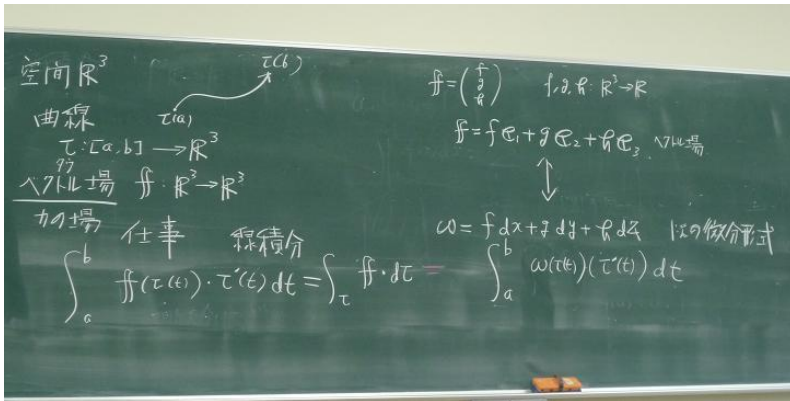 空間 ℝ³
曲線
τ(a) τ(b)
τ:[a,b] → ℝ³
タウ
ベクトル場 𝕗: ℝ³→ℝ³
力の場
仕事 線積分
∫ₐᵇ 𝕗(τ(t))・τ'(t)dt = ∫_τ 𝕗・dτ =
𝕗 = (f g h) f,g,h: ℝ³→ℝ
𝕗 = f𝕖₁+g𝕖₂+h𝕖₃ ベクトル場
↕
ω = fdx+gdy+hdz 1次の微分形式
∫ₐᵇ ω(τ(t))(τ'(t))dt